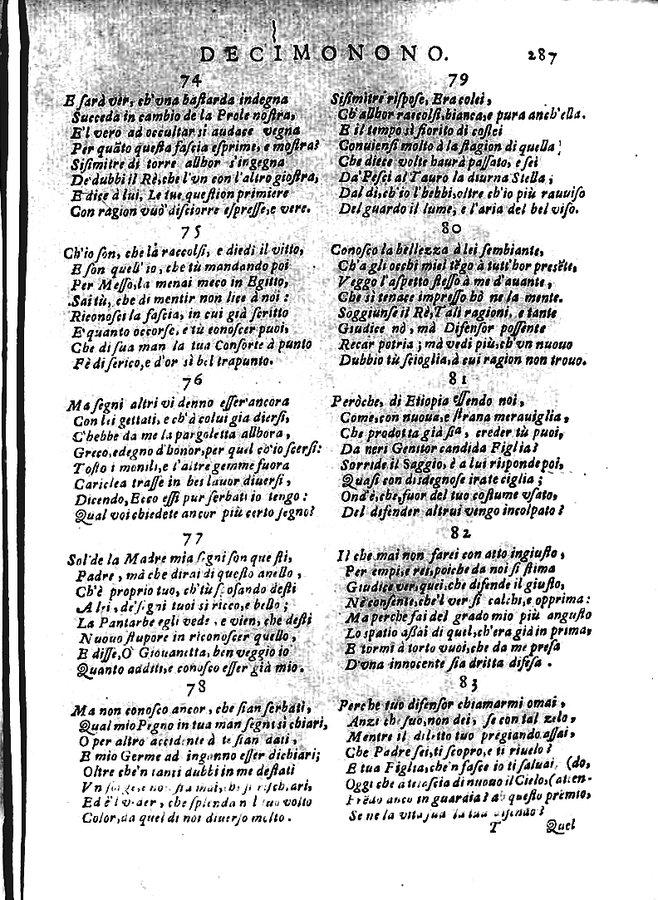 DECIMONONO. 287
74
E sarà ver, ch'vna bastarda indegna
Succeda in cambio de la Prole nostra,
E'l vero ad occultar si audace vegna
Per quãto questa fascia esprime, e mostra?
Sisimitre di torre allhor s'ingegna
De' dubbi il Rè, che l'vn con l'altro giostra,
E dice à lui, Le tue question primiere
Con ragion vuò disciorre espresse, e vere.
75
Ch'io son, che là raccolsi, e diedi il vitto,
E son quell'io, che tù mandando poi
Per Messo, la menai meco in Egitto,
Sai tù, che di mentir non lice à noi:
Riconosci la fascia, in cui già scritto
E' quanto occorse, e tù conoscer puoi,
Che di sua man la tua Consorte à punto
Fè di serico, e d'or sì bel trapunto.
76
Ma segni altri vi denno esser ancora
Con lei gettati, e ch'à colui gia diersi,
C'hebbe da me la pargoletta allhora,
Greco, e degno d'honor, per quel cò'io scersi:
Tosto i monili, e l'altre gemme fuora
Cariclea trasse in bei lauor diuersi,
Dicendo, Ecco essi pur serbati io tengo:
Qual voi chiedete ancor più certo segno?
77
Sol de la Madre mia segni son questi,
Padre, mà che dirai di questo anello,
Ch'è proprio tuo, ch'tù sposando desti
A lei, de' segni tuoi sì ricco, e bello;
La Pantarbe egli vede, e vien, che desti
Nuouo stupore in riconoscer quello,
E disse, O' Giouanetta, ben veggio io
Quanto additi, e conosco esser già mio.
78
Ma non conosco ancor, che sian serbati,
Qual mio Pegno in tua man segni sì chiari,
O per altro accidente à te sian dati,
E mio Germe ad inganno esser dichiari;
Oltre che'n tanti dubbi in me destati
Ed è l veder, che splenda n l tuo volto
Color, da quel di noi diuerso molto.
79
Sisimitre rispose, Era colei,
Ch'allhor raccolsi, bianca, e pura anch'ella.
E il tempo sì fiorito di costei
Conuiensi molto à la stagion di quella!
Che diece volte haurà passato, e sei
Da' Pesci al Tauro la diurna Stella;
Dal dì, ch'io l'hebbi, oltre ch'io più rauuiso
Del guardo il lume, e l'aria del bel viso.
80
Conosco la bellezza à lei sembiante,
Ch'a gli occhi miei tẽgo à tutt'hor presẽte,
Veggo l'aspetto stesso à me d'auante,
Che sì tenace impresso hò ne la mente.
Soggiunse il Rè, Tali ragioni, e tante
Giudice nò, mà Difensor possente
Recar potria; mà vedi più, ch'vn nuouo
Dubbio tù scioglia, à cui ragion non trouo.
81
Peròche, di Etiopia essendo noi,
Come, con nuoua, e strana merauiglia,
Che prodotta già sia, creder tù puoi,
Da neri Genitor candida Figlia?
Sorride il Saggio, e à lui risponde poi,
Quasi con disdegnose irate ciglia;
Ond'è, che, fuor del tuo costume vsato,
Del difender altrui vengo incolpato?
82
Il che mai non farei con atto ingiusto,
Per empi, e rei, poiche da noi si stima
Giudice ver, quei, che difende il giusto,
Nè consente, che'l ver si calchi, e opprima:
Ma perche fai del grado mio più angusto
Lo spatio assai di quel, ch'era già in prima,
E tormi à torto vuoi, che da me presa
D'vna innocente sia dritta difesa.
83
Perche tuo difensor chiamarmi omai,
Anzi che suo, non dei, se con tal zelo,
Mentre il diletto tuo pregiando assai,
Che Padre sei, ti scopro, e ti riuelo?
E tua Figlia, che'n fasce io ti saluai, (do,
Oggi che à te lascia di nuouo il Cielo, (atten-
anco in guardia? à questo premio,
Se ne la vita sua la tua difendo?
T Quel